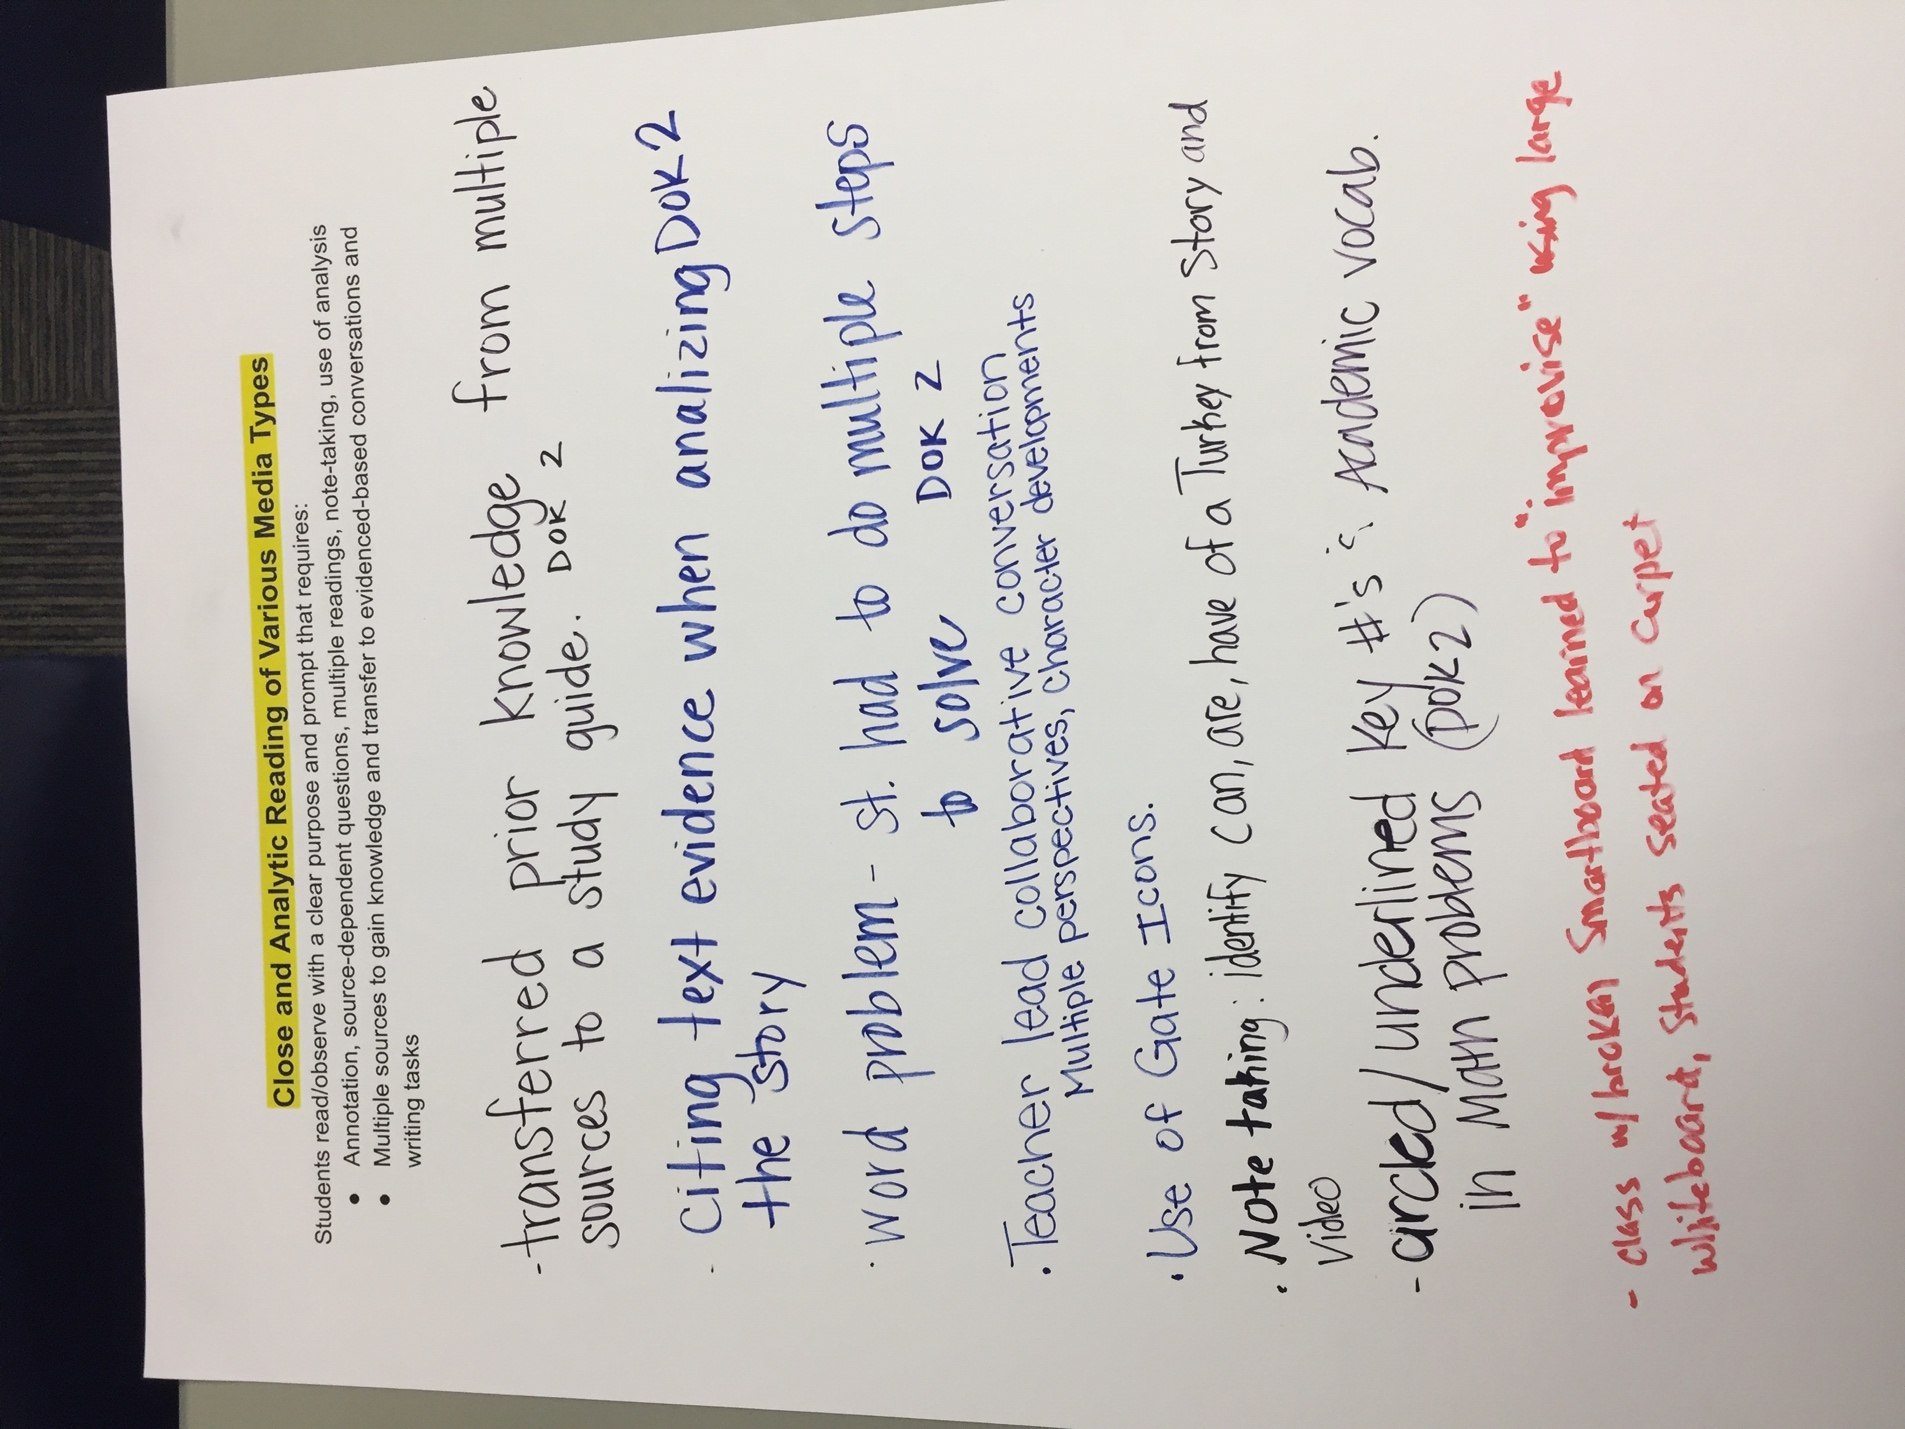 Close and Analytic Reading of Various Media Types
Students read/observe with a clear purpose and prompt that requires:
• Annotation, source-dependent questions, multiple readings, note-taking, use of analysis
• Multiple sources to gain knowledge and transfer to evidenced-based conversations and
writing tasks
- transferred prior knowledge from multiple
sources to a study guide. DOK 2
· Citing text evidence when analizing DOK2
the story
· Word problem - st. had to do multiple steps
to solve DOK 2
· Teacher lead collaborative conversation
Multiple perspectives, character developments
· Use of Gate Icons.
· Note taking: identify can, are, have of a Turkey from Story and
Video
- circled/underlined key #'s & Academic vocab.
in Math problems (DOK2)
- class w/broken Smartboard learned to "improvise" using large
whiteboard, students seated on carpet